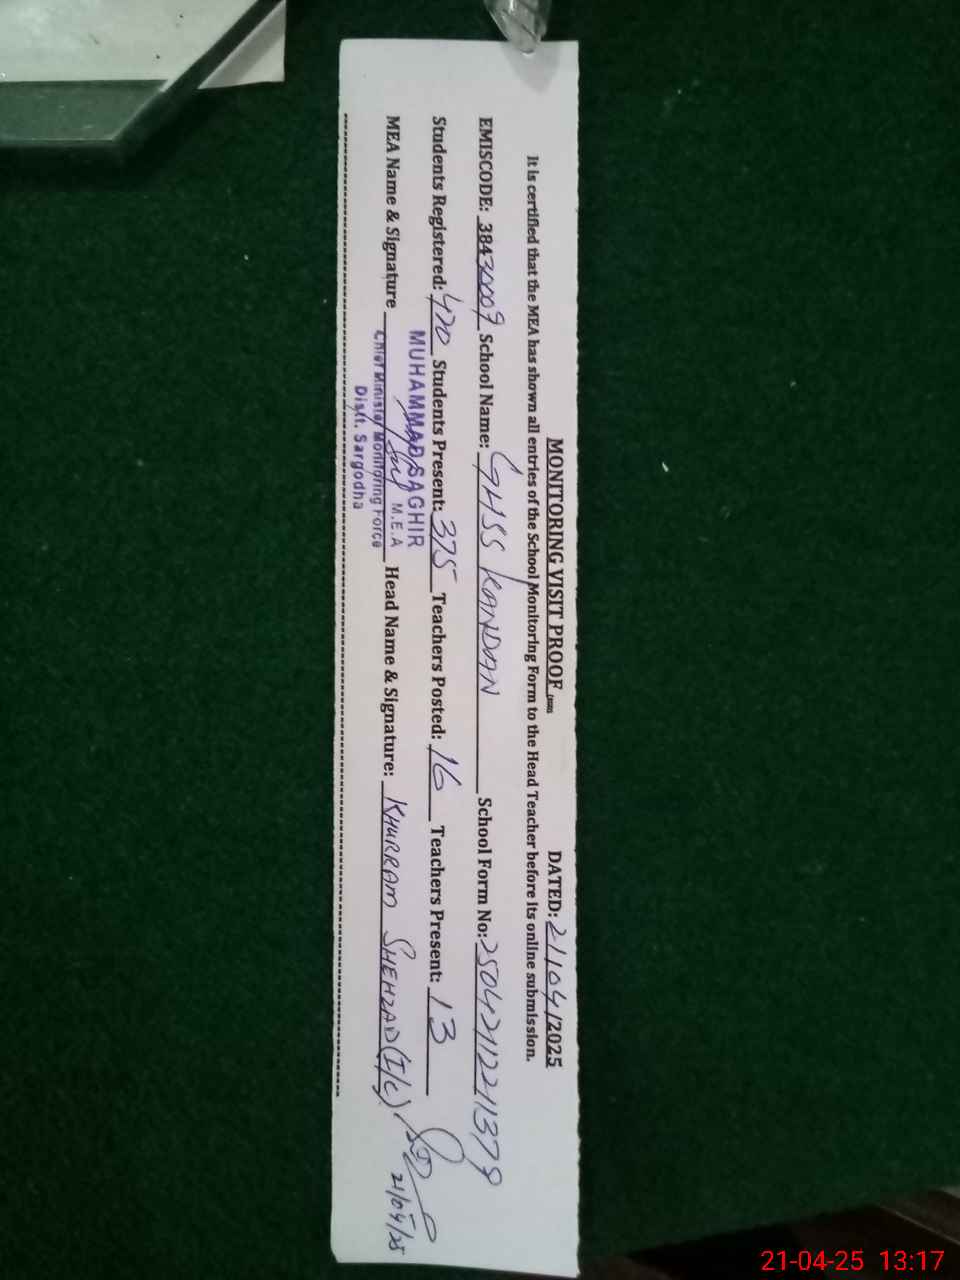 MONITORING VISIT PROOF DATED: 21/04/2025
It is certified that the MEA has shown all entries of the School Monitoring Form to the Head Teacher before its online submission.
EMISCODE: 38430009 School Name: GHSS RANDAN School Form No:
Students Registered: 420 Students Present: 375 Teachers Posted: 16 Teachers Present: 13
MEA Name & Signature Head Name & Signature: KHURRAM SHEHZAD (I/C)
21/04/25
MUHAMMAD SAGHIR
M.E.A
Chief Minister Monitoring Force
Distt. Sargodha
21-04-25 13:17